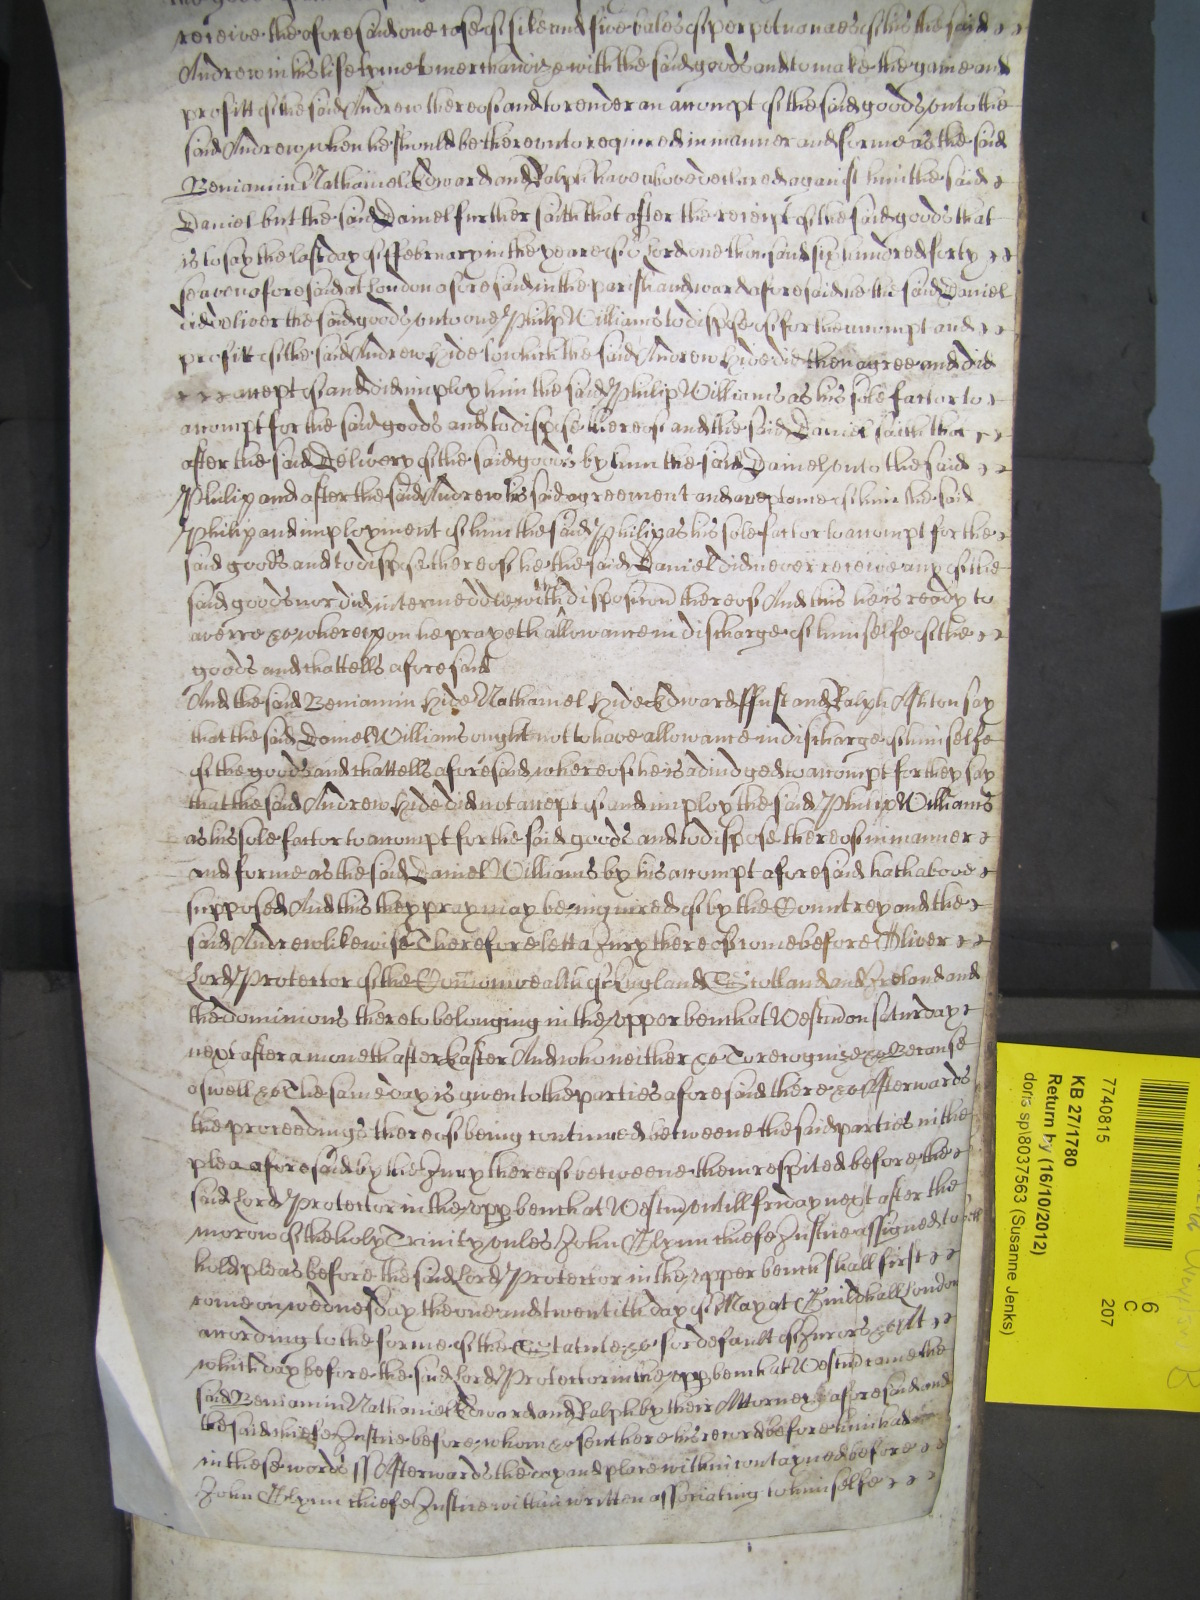 receive the aforesaid one case of silke and five bales of perpetuanaes of his the said
Andrew in his life tyme to merchandize with the said goods and to make the gaine and
profitt of the said Andrew thereof and to render an accompt of the said goods unto the
said Andrew when he should be thereunto required in manner and forme as the said
Beniamin Nathaniel Edward and Ralph have above declared against him the said
Daniel but the said Daniel further saith that after the receipt of the said goods that
is to say the last day of ffebruary in the yeare of oʳ Lord one thousand six hundred forty
seaven aforesaid at London aforesaid in the parish and ward aforesaid he the said Daniel
did deliver the said goods unto one Philip Williams to dispose of for the accompt and
profitt of the said Andrew Hide to which the said Andrew Hide did then agree and did
accept of and did imploy him the said Philip Williams as his sole factor to
accompt for the said goods and to dispose thereof and the said Daniel saith that
after the said Delivery of the said goods by him the said Daniel unto the said
Philip and after the said Andrew his said agreement and acceptance of him the said
Philip and imployment of him the said Philip as his sole factor to accompt for the
said goods and to dispose thereof he the said Daniel did never receive any of the
said goods nor did intermeddle with the disposicon thereof And this he is ready to
averre &c whereupon he prayeth allowance in discharge of himselfe of the
goods and chattells aforesaid
And the said Beniamin Hide Nathaniel Hide Edward ffust and Ralph Ashton say
that the said Daniel Williams ought not to have allowance in discharge of himselfe
of the goods and chattells aforesaid whereof he is adiudged to accompt for they say
that the said Andrew Hide did not accept of and imploy the said Philip Williams
as his sole factor to accompt for the said goods and to dispose thereof in manner
and forme as the said Daniel Williams by his accompt aforesaid hath above
supposed And this they pray may be inquired of by the Countrey and the
said Andrew likewise Therefore lett a Jury thereof come before Oliver
Lord Protector of the Comonwealth of England Scotland and Ireland and
the dominions thereto belonging in the upper bench at Westm on saturday
next after a moneth after Easter And who neither &c To recognize &c Because
aswell &c The same day is given to the parties aforesaid there &c Afterwards
the proceedings thereof being continued betweene the said parties in the
plea aforesaid by the Jury thereof betweene them respited before the
said Lord Protector in the upp bench at Westm untill friday next after the
morow of the holy Trinity unles John Glynn chiefe Justice assigned to
hold pleas before the said Lord Protector in the upper bench shall first
come on wednesday the one and twentith day of May at Guildhall London
according to the forme of the Statute &c for default of Jurors &c Att
which day before the said Lord Protector in the upp bench at Westm came the
said Beniamin Nathaniel Edward and Ralph by their Attorney aforesaid and
the said chiefe Justice before whom &c sent here his record before him had
in these words ss Afterwards the day and place within contayned before
John Glynn chiefe Justice within written associating to himselfe
7740815
KB 27/1780
Return by (16/10/2012)
doris sp\8037563 (Susanne Jenks)
6
C
207